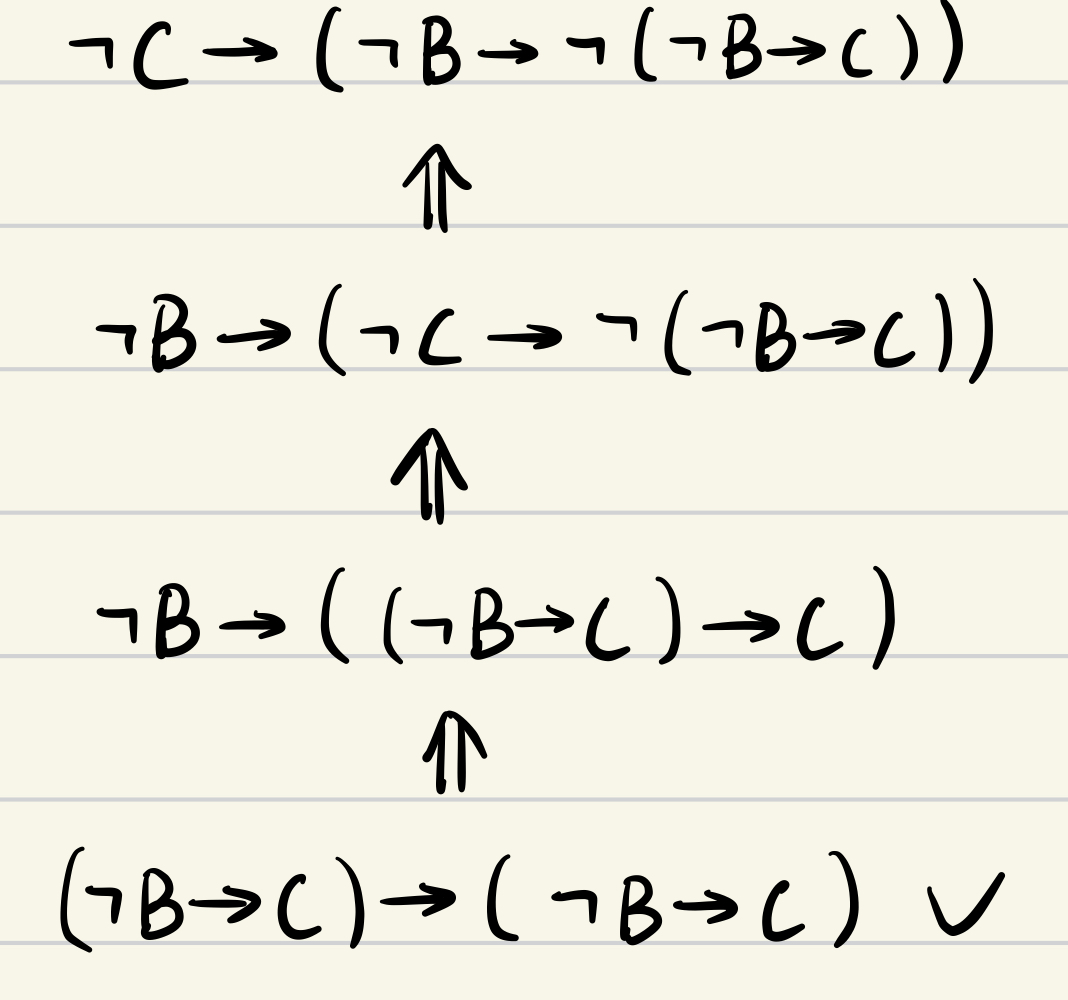 ¬C → (¬B → ¬(¬B → C))
⇑
¬B → (¬C → ¬(¬B → C))
⇑
¬B → ((¬B → C) → C)
⇑
(¬B → C) → (¬B → C) ✓